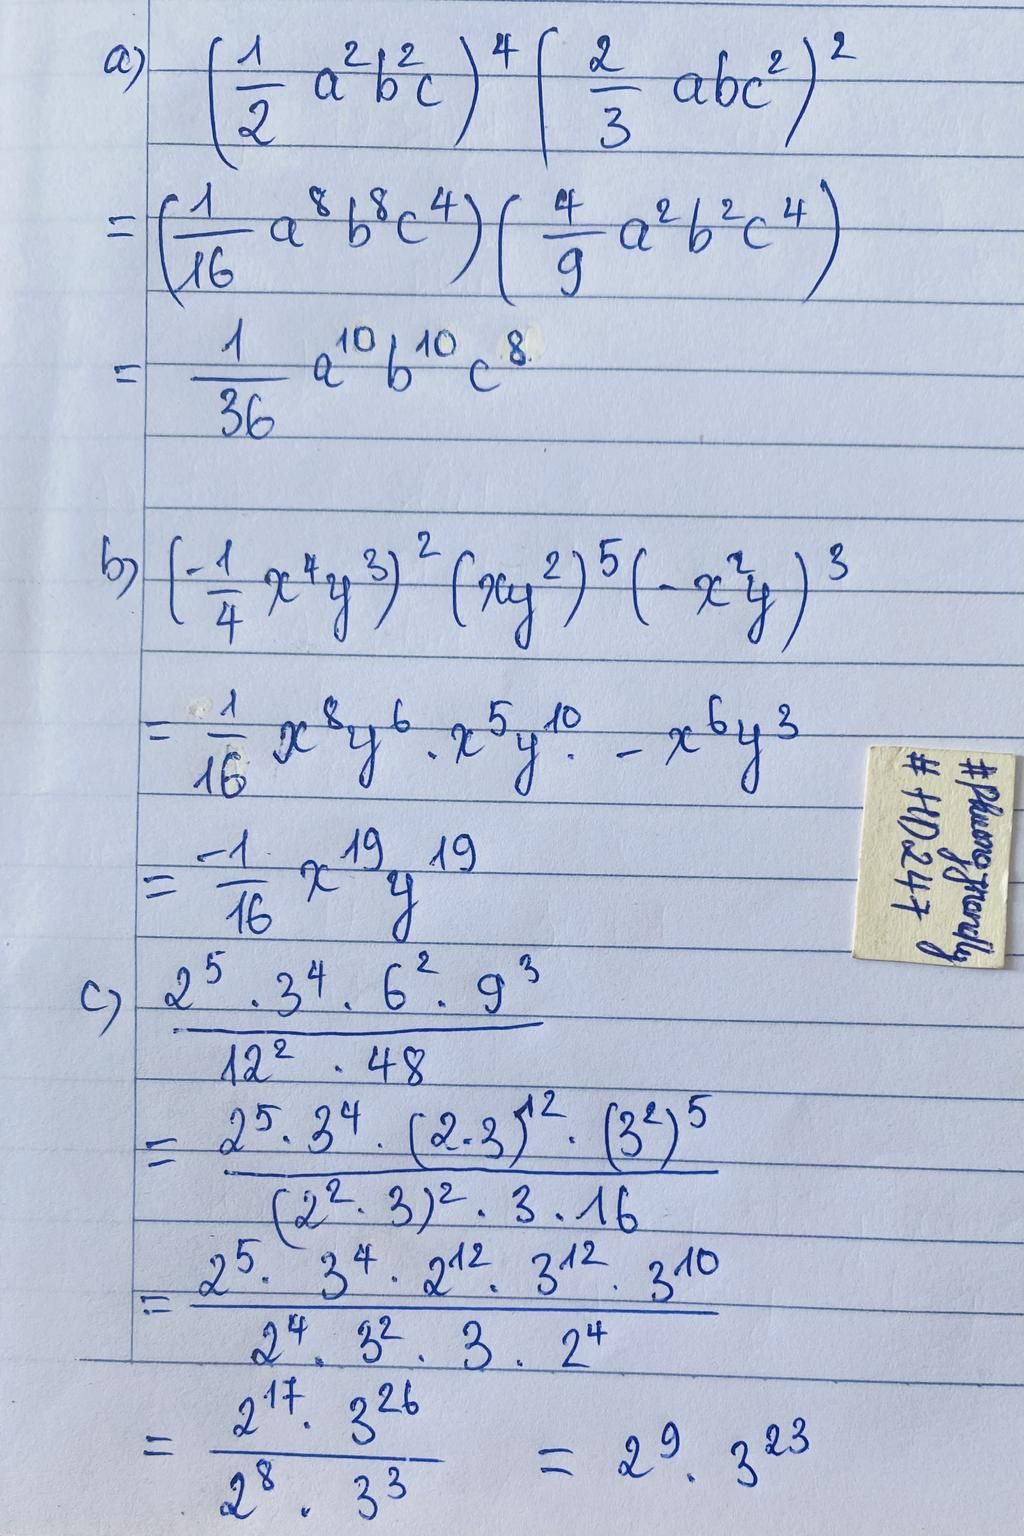 a) (1/2 a²b²c)⁴ (2/3 abc²)²
= (1/16 a⁸b⁸c⁴) (4/9 a²b²c⁴)
= 1/36 a¹⁰b¹⁰c⁸
b) (-1/4 x⁴y³)² (xy²)⁵ (-x²y)³
= 1/16 x⁸y⁶ . x⁵y¹⁰ . - x⁶y³
= -1/16 x¹⁹y¹⁹
#HD247
c) 2⁵ . 3⁴ . 6² . 9³
12² . 48
= 2⁵ . 3⁴ . (2.3)¹² . (3²)⁵
(2² . 3)² . 3 . 16
= 2⁵ . 3⁴ . 2¹² . 3¹² . 3¹⁰
2⁴ . 3² . 3 . 2⁴
= 2¹⁷ . 3²⁶ / 2⁸ . 3³ = 2⁹ . 3²³